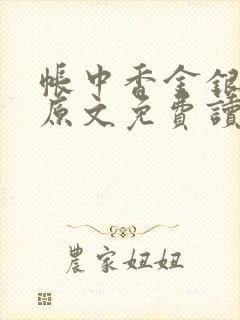 帳中香金銀
原文免費讀
農家妞妞